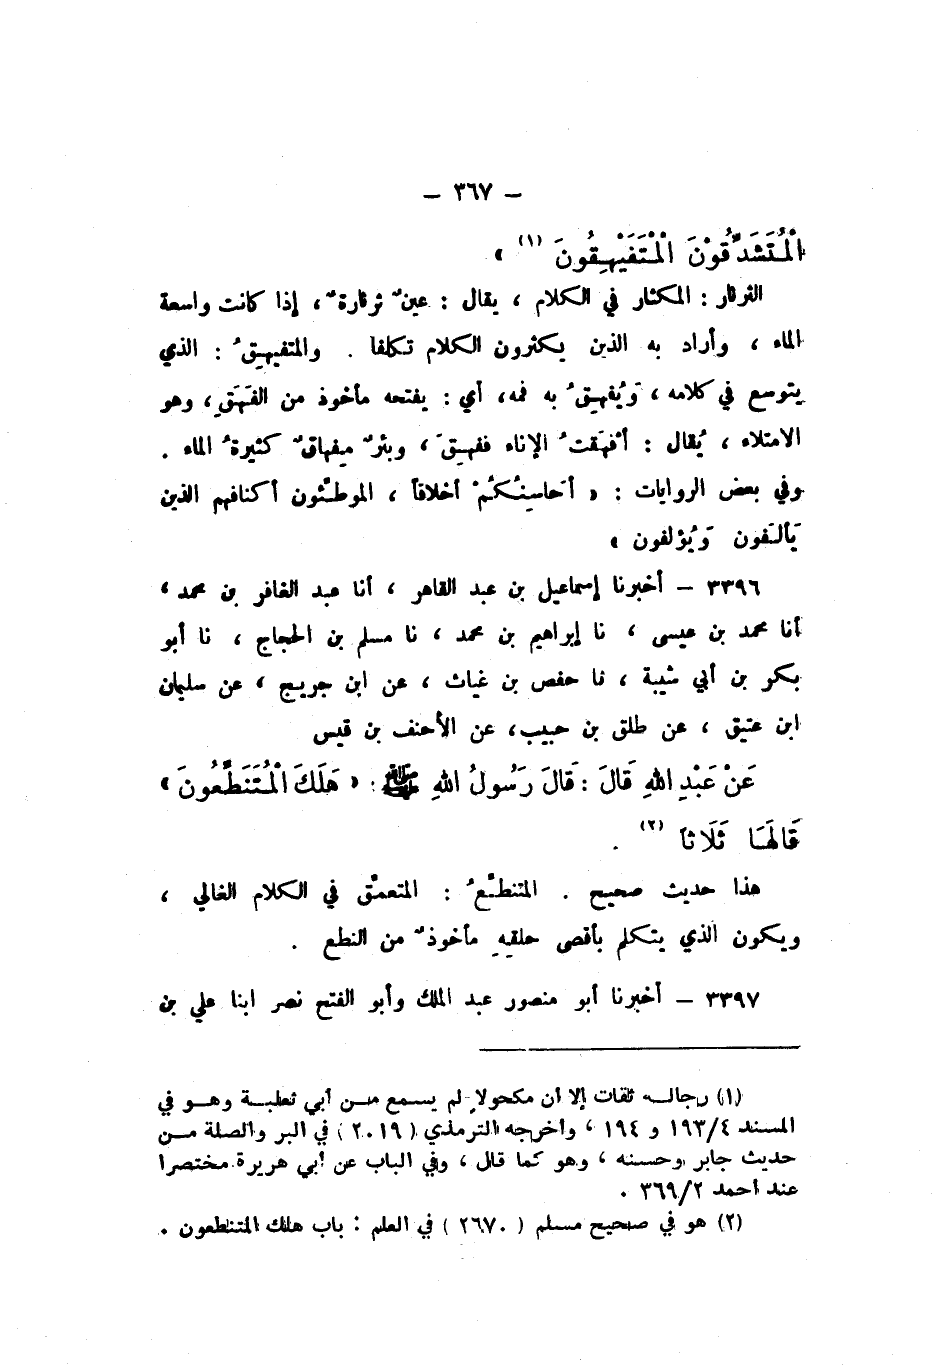 – ٣٦٧ –
الْمُتَشَدِّقُوْنَ الْمُتَفَيْهِقُونَ (١) »
الثرثار : المكثار في الكلام ، يقال : عينٌ ثرثارةٌ ، إذا كانت واسعة
الماء ، وأراد به الذين يكثرون الكلام تكلفا . والمتفيهِقُ : الذي
يتوسع في كلامه ، وَيُفهِقُ به فمه ، أي : يفتحه مأخوذ من الفَهَقِ ، وهو
الامتلاء ، يُقال : أفْهَقتُ الإناء ففهِقَ ، وبئرٌ مِفهاقٌ كثيرةُ الماء .
وفي بعض الروايات : « أحَاسِنُكُمْ أخلاقاً ، الموطَّئون أكنافهم الذين
يَألَفون وَيُؤلفون »
٣٣٩٦ – أخبرنا إسماعيل بن عبد القاهر ، أنا عبد الغافر بن محمد ،
أنا محمد بن عيسى ، نا إبراهيم بن محمد ، نا مسلم بن الحجاج ، نا أبو
بكر بن أبي شيبة ، نا حفص بن غياث ، عن ابن جريج ، عن سليمان
ابن عتيق ، عن طلق بن حبيب ، عن الأحنف بن قيس
عَنْ عَبْدِ اللهِ قَالَ : قَالَ رَسُولُ اللهِ ﷺ : « هَلَكَ الْمُتَنَطِّعُونَ »
قَالَهَا ثَلَاثاً (٢) .
هذا حديث صحيح . المتنطِّعُ : المتعمِّق في الكلام الغالي ،
ويكون الذي يتكلم بأقصى حلقِهِ مأخوذٌ من النطع .
٣٣٩٧ – أخبرنا أبو منصور عبد الملك وأبو الفتح نصر ابنا علي بن
(١) رجاله ثقات إلا أن مكحولا لم يسمع من أبي ثعلبة وهو في
المسند ١٩٣/٤ و ١٩٤ ، وأخرجه الترمذي ( ٢٠١٩ ) في البر والصلة من
حديث جابر وحسنه ، وهو كما قال ، وفي الباب عن أبي هريرة مختصرا
عند أحمد ٣٦٩/٢ .
(٢) هو في صحيح مسلم ( ٢٦٧٠ ) في العلم : باب هلك المتنطعون .